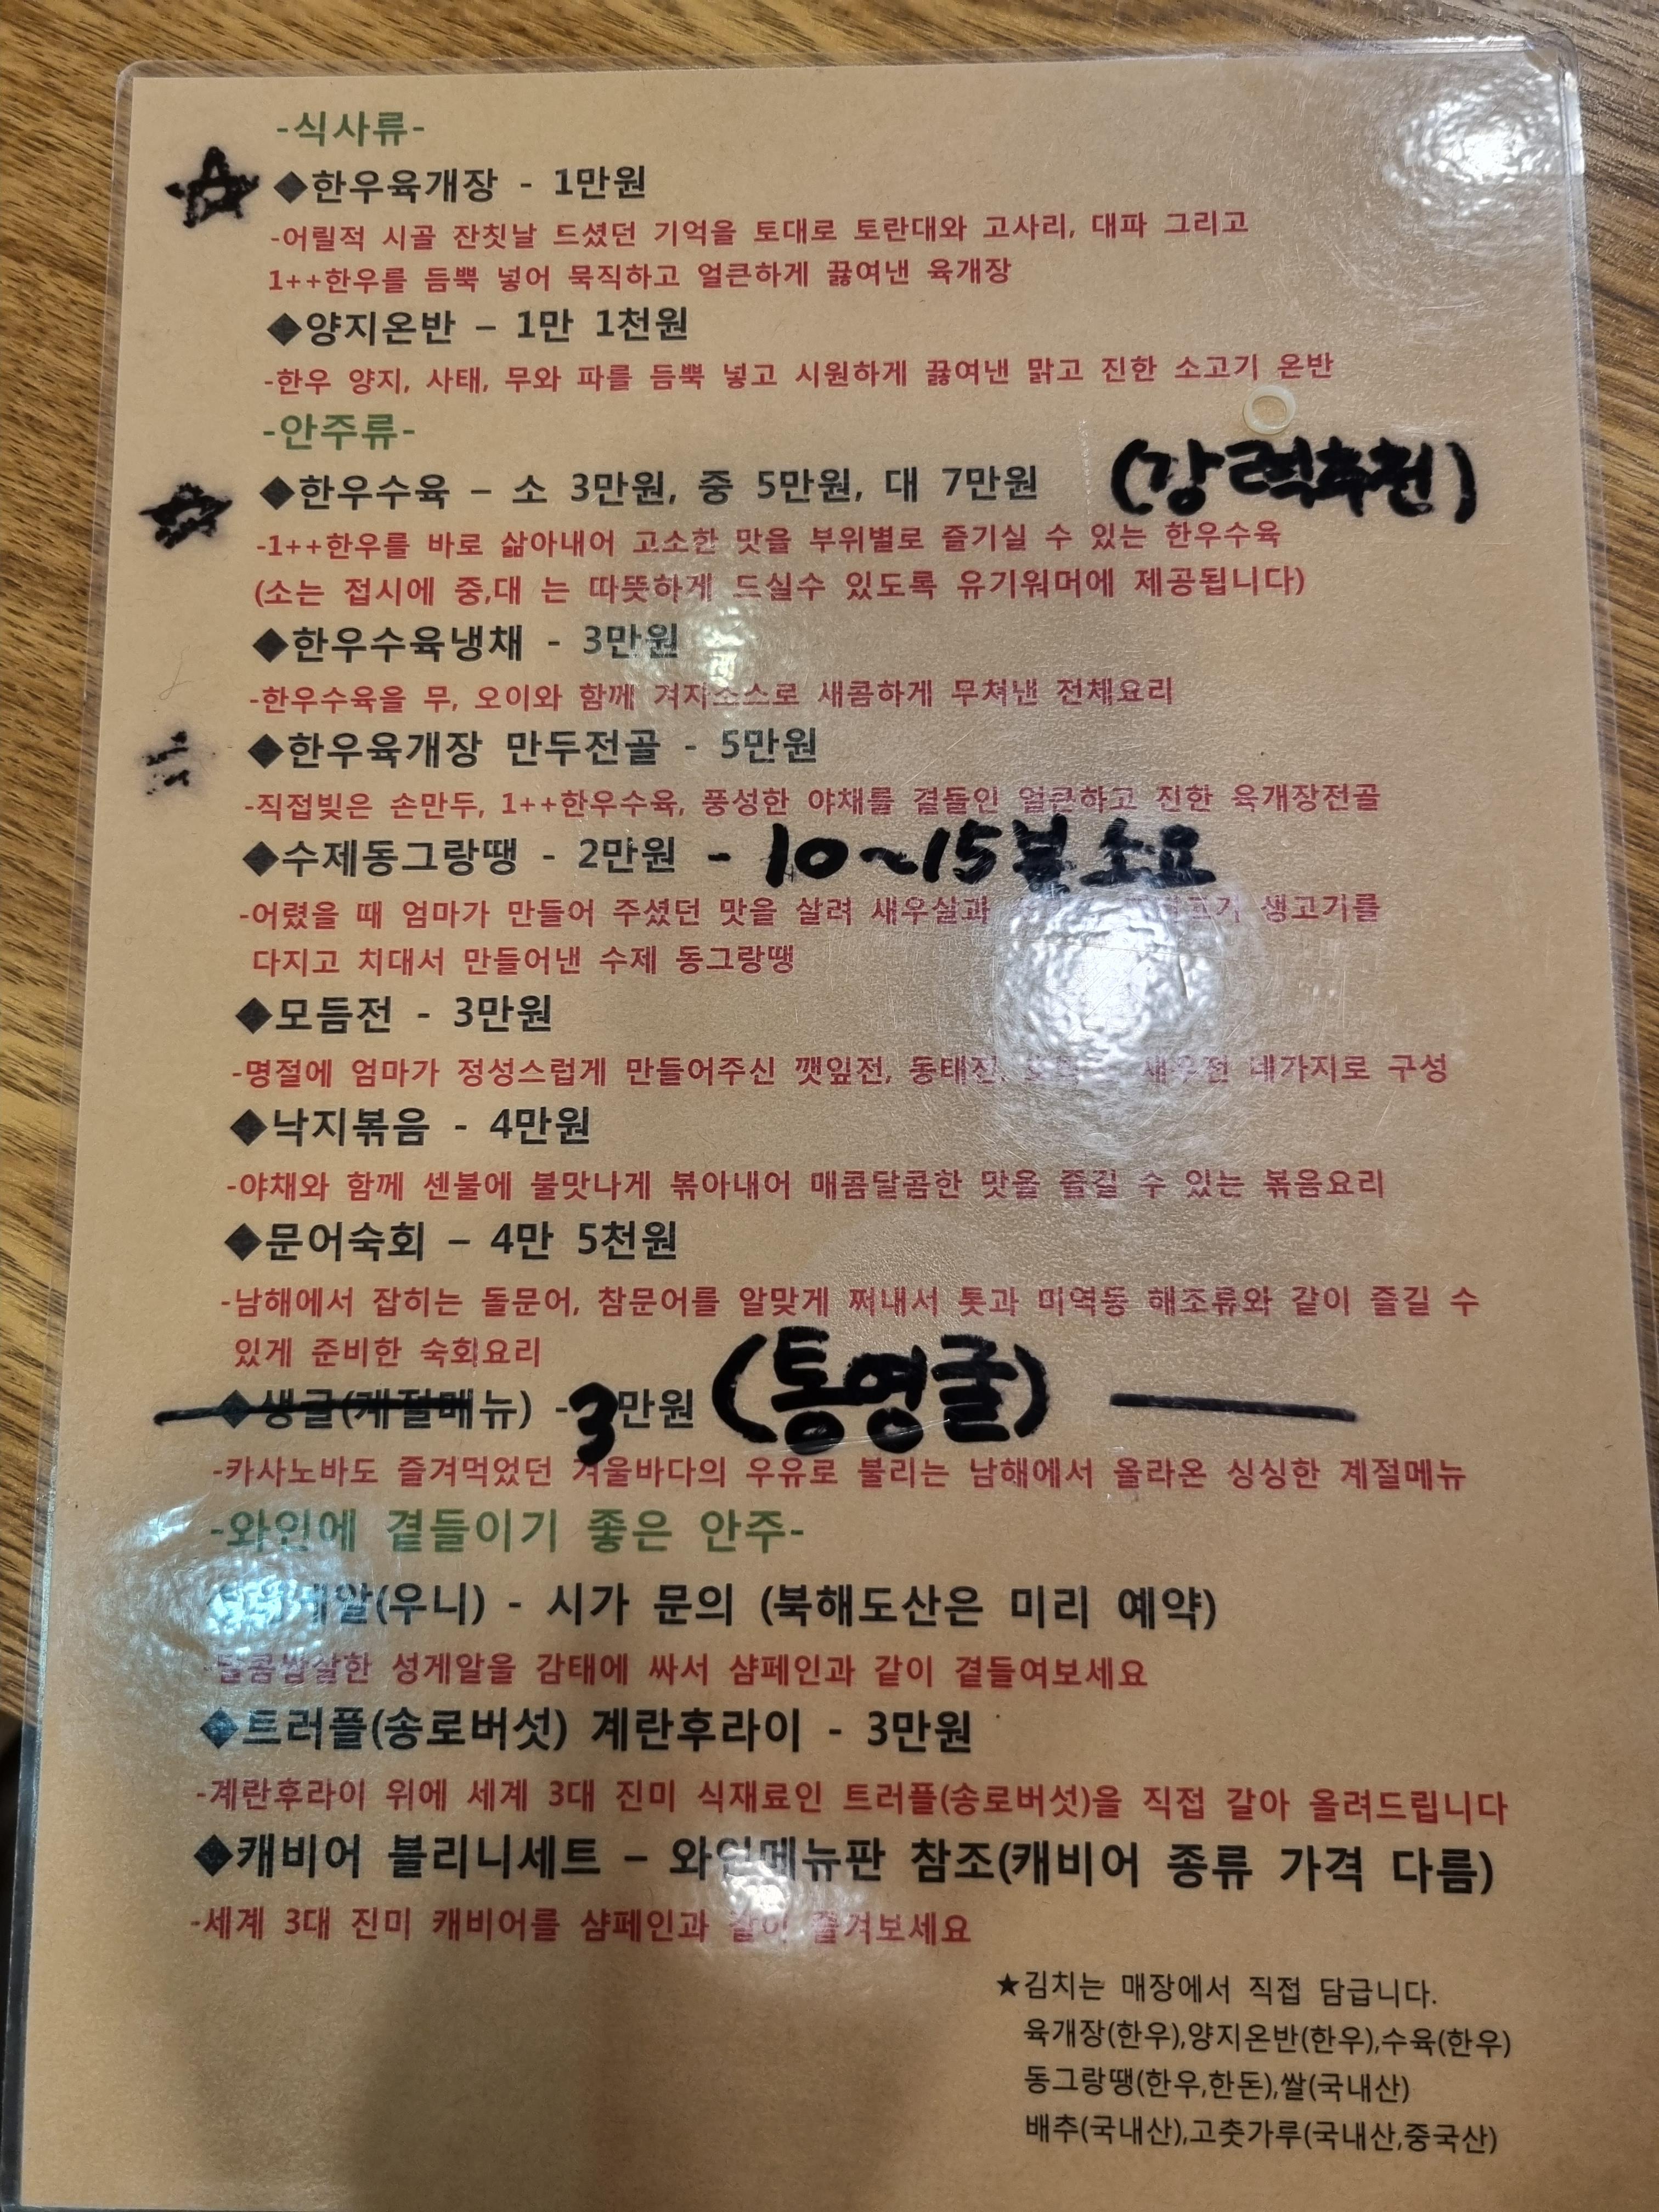 -식사류-
◆한우육개장 - 1만원
-어릴적 시골 잔칫날 드셨던 기억을 토대로 토란대와 고사리, 대파 그리고
1++한우를 듬뿍 넣어 묵직하고 얼큰하게 끓여낸 육개장
◆양지온반 – 1만 1천원
-한우 양지, 사태, 무와 파를 듬뿍 넣고 시원하게 끓여낸 맑고 진한 소고기 온반
-안주류-
◆한우수육 – 소 3만원, 중 5만원, 대 7만원 (강력추천)
-1++한우를 바로 삶아내어 고소한 맛을 부위별로 즐기실 수 있는 한우수육
(소는 접시에 중,대 는 따뜻하게 드실수 있도록 유기워머에 제공됩니다)
◆한우수육냉채 - 3만원
-한우수육을 무, 오이와 함께 겨자소스로 새콤하게 무쳐낸 전체요리
◆한우육개장 만두전골 - 5만원
-직접빚은 손만두, 1++한우수육, 풍성한 야채를 곁들인 얼큰하고 진한 육개장전골
◆수제동그랑땡 - 2만원 - 10~15분 소요
-어렸을 때 엄마가 만들어 주셨던 맛을 살려 새우살과 생고기를
다지고 치대서 만들어낸 수제 동그랑땡
◆모듬전 - 3만원
-명절에 엄마가 정성스럽게 만들어주신 깻잎전, 동태전, 새우전 네가지로 구성
◆낙지볶음 - 4만원
-야채와 함께 센불에 불맛나게 볶아내어 매콤달콤한 맛을 즐길 수 있는 볶음요리
◆문어숙회 – 4만 5천원
-남해에서 잡히는 돌문어, 참문어를 알맞게 쪄내서 톳과 미역등 해조류와 같이 즐길 수
있게 준비한 숙회요리
◆생굴(계절메뉴) -3만원 (통영굴)
-카사노바도 즐겨먹었던 겨울바다의 우유로 불리는 남해에서 올라온 싱싱한 계절메뉴
-와인에 곁들이기 좋은 안주-
(우니) - 시가 문의 (북해도산은 미리 예약)
-달콤쌉살한 성게알을 감태에 싸서 샴페인과 같이 곁들여보세요
◆트러플(송로버섯) 계란후라이 - 3만원
-계란후라이 위에 세계 3대 진미 식재료인 트러플(송로버섯)을 직접 갈아 올려드립니다
◆캐비어 블리니세트 – 와인메뉴판 참조(캐비어 종류 가격 다름)
-세계 3대 진미 캐비어를 샴페인과 같이 즐겨보세요
★김치는 매장에서 직접 담급니다.
육개장(한우),양지온반(한우),수육(한우)
동그랑땡(한우,한돈),쌀(국내산)
배추(국내산),고춧가루(국내산,중국산)